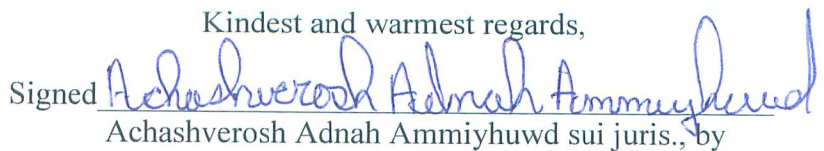 Kindest and warmest regards,
Signed Achashverosh Adnah Ammiyhuwd
Achashverosh Adnah Ammiyhuwd sui juris., by